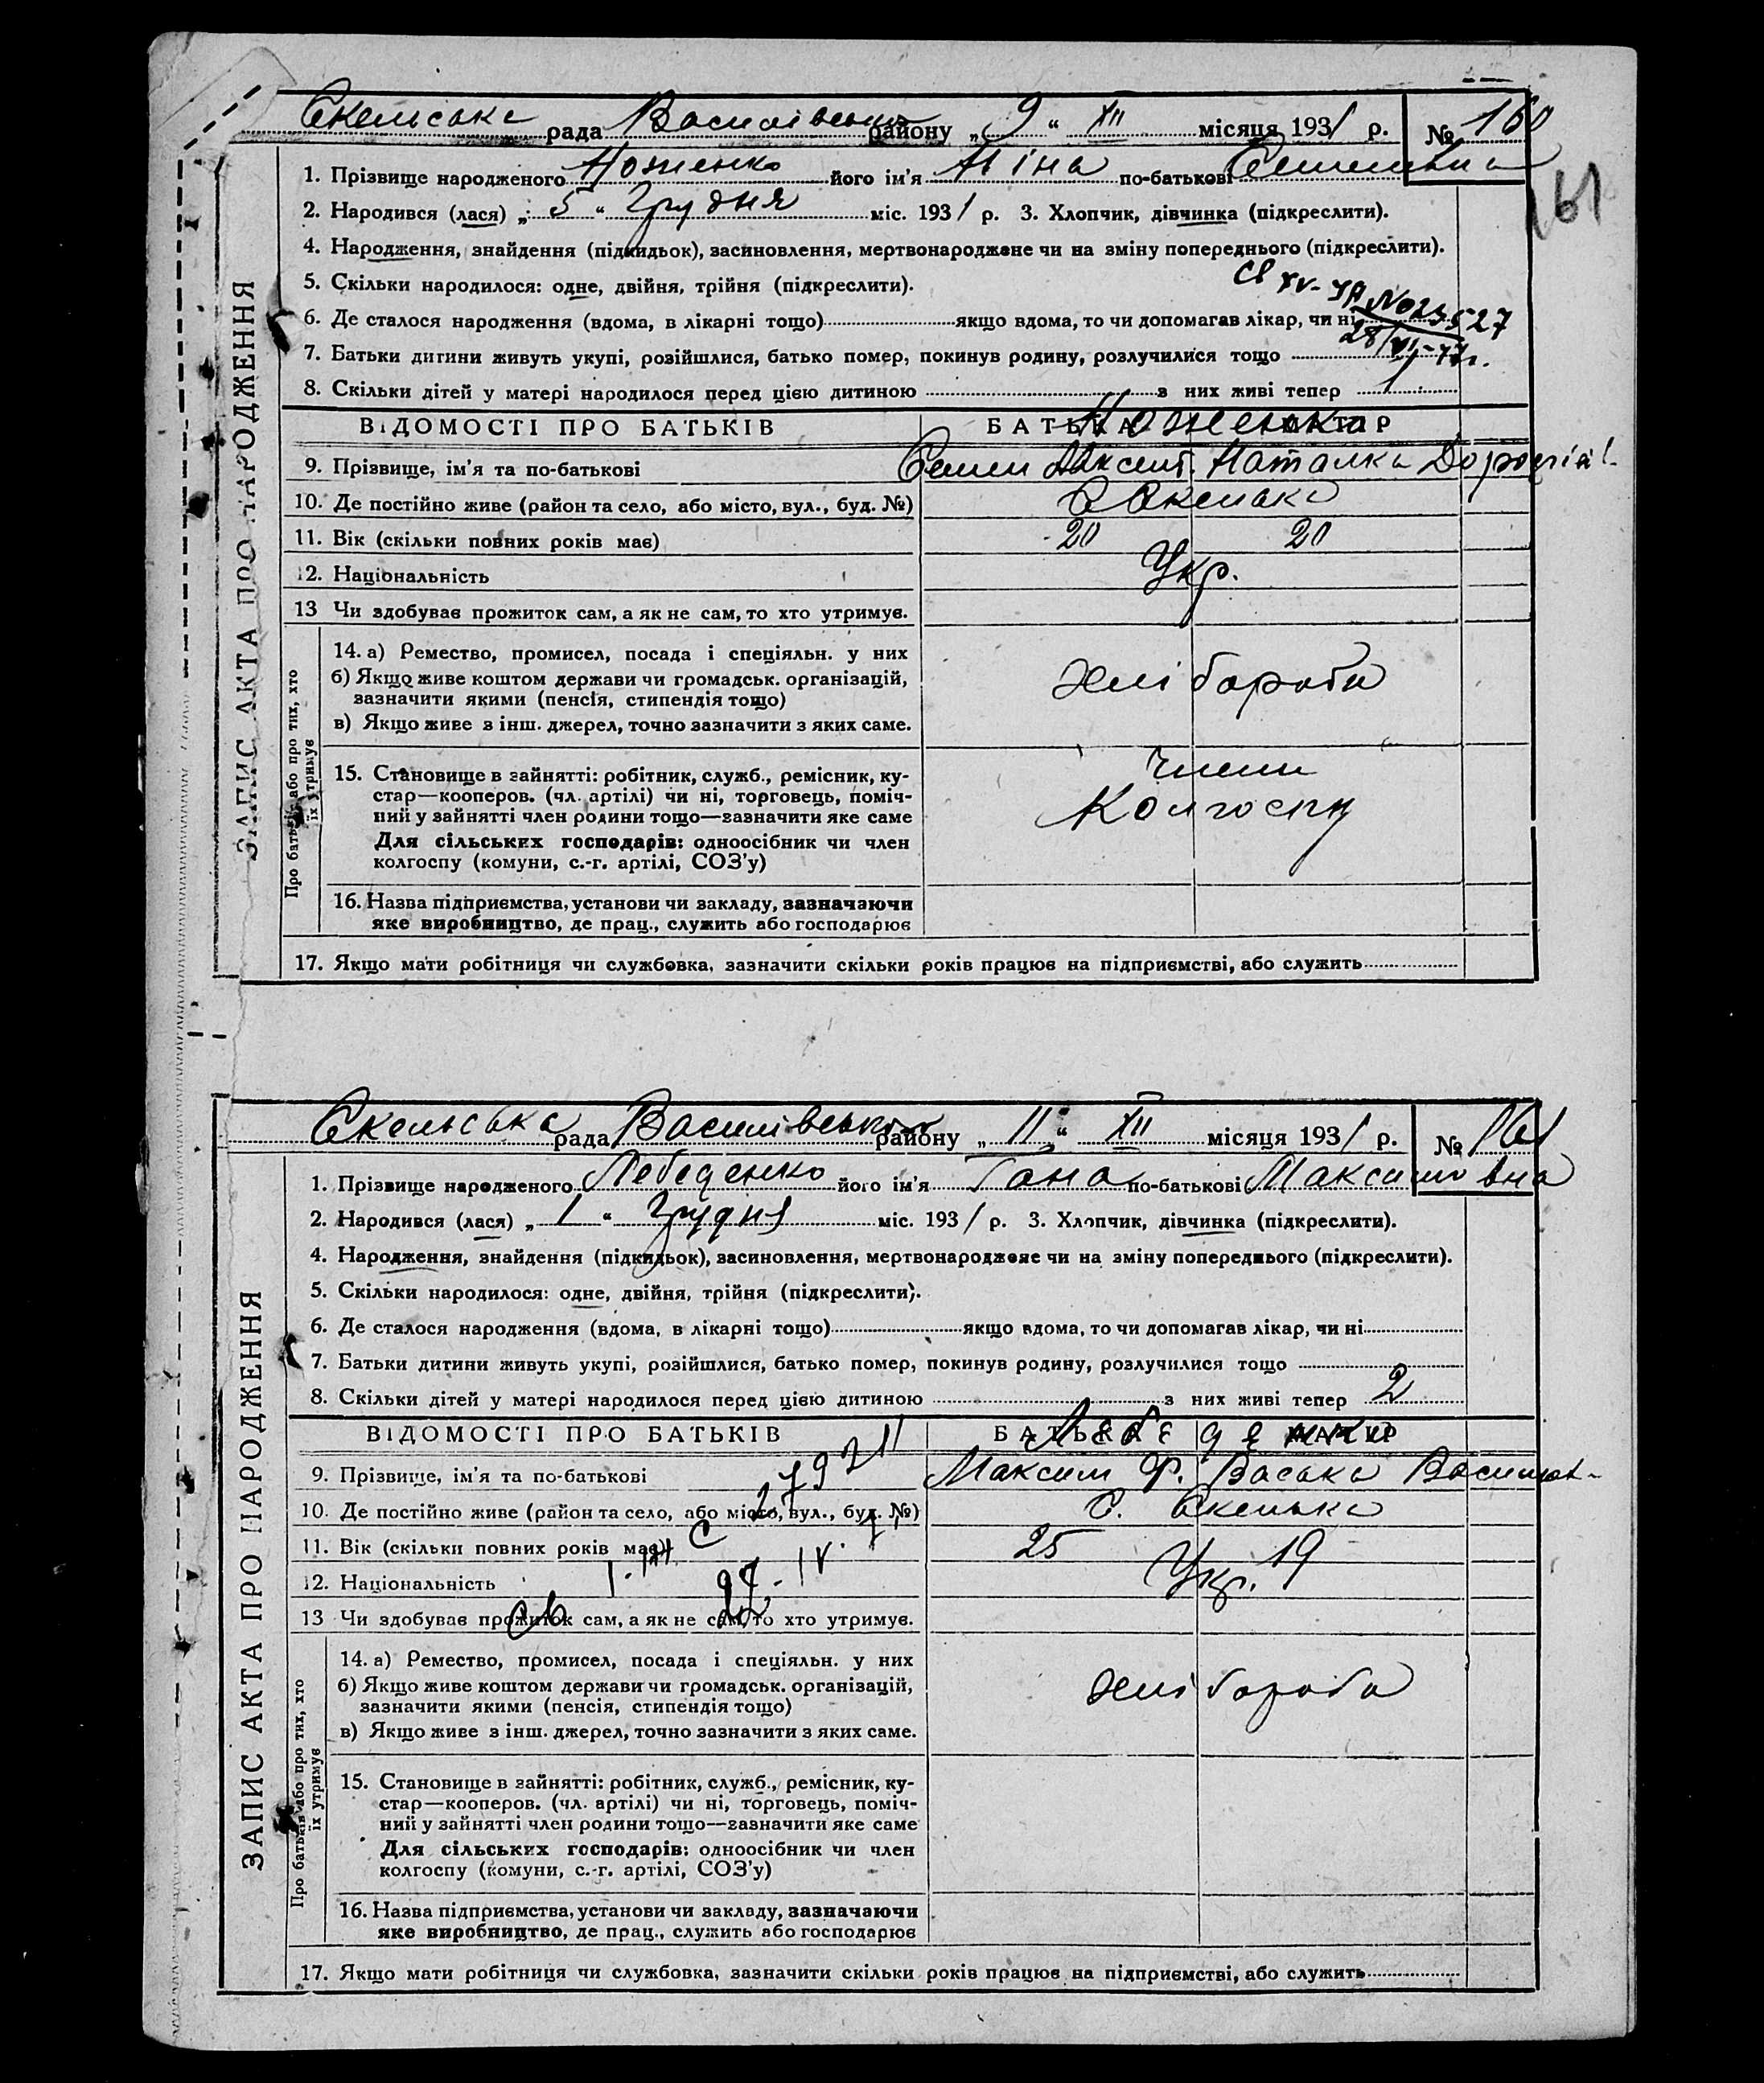 Скельська рада Василівськ району „9“ XII місяця 1931 р. № 160
161
ЗАПИС АКТА ПРО НАРОДЖЕННЯ
1. Прізвище народженого Ноженко його ім'я Ніна по-батькові Семенівна
2. Народився (лася) „5“ Грудня міс. 1931 р. 3. Хлопчик, дівчинка (підкреслити).
4. Народження, знайдення (підкидьок), засиновлення, мертвонароджене чи на зміну попереднього (підкреслити).
5. Скільки народилося: одне, двійня, трійня (підкреслити).
6. Де сталося народження (вдома, в лікарні тощо) якщо вдома, то чи допомагав лікар, чи ні
7. Батьки дитини живуть укупі, розійшлися, батько помер, покинув родину, розлучилися тощо
8. Скільки дітей у матері народилося перед цією дитиною з них живі тепер 1
ВІДОМОСТІ ПРО БАТЬКІВ БАТЬКА МАТІР
Ноженко
9. Прізвище, ім'я та по-батькові Семен Наталка
10. Де постійно живе (район та село, або місто, вул., буд. №) С Скелька
11. Вік (скільки повних років має) 20 20
12. Національність Укр.
13 Чи здобував прожиток сам, а як не сам, то хто утримув.
Про батьків або про тих, хто їх утримує
14. а) Ремество, промисел, посада і спеціяльн. у них
б) Якщо живе коштом держави чи громадськ. організацій,
зазначити якими (пенсія, стипендія тощо)
в) Якщо живе з інш. джерел, точно зазначити з яких саме.
Хлібороби
15. Становище в зайнятті: робітник, служб., ремісник, ку-
стар—кооперов. (чл. артілі) чи ні, торговець, поміч-
ний у зайнятті член родини тощо—зазначити яке саме
Для сільських господарів: одноосібник чи член
колгоспу (комуни, с.-г. артілі, СОЗ'у)
Члени
Колгоспу
16. Назва підприємства, установи чи закладу, зазначаючи
яке виробництво, де прац., служить або господарює
17. Якщо мати робітниця чи службовка, зазначити скільки років працює на підприємстві, або служить
Скельська рада Василівськ району „11“ XII місяця 1931 р. № 161
ЗАПИС АКТА ПРО НАРОДЖЕННЯ
1. Прізвище народженого Лебеденко його ім'я Гана по-батькові Максимовна
2. Народився (лася) „1“ Грудня міс. 1931 р. 3. Хлопчик, дівчинка (підкреслити).
4. Народження, знайдення (підкидьок), засиновлення, мертвонароджене чи на зміну попереднього (підкреслити).
5. Скільки народилося: одне, двійня, трійня (підкреслити).
6. Де сталося народження (вдома, в лікарні тощо) якщо вдома, то чи допомагав лікар, чи ні
7. Батьки дитини живуть укупі, розійшлися, батько помер, покинув родину, розлучилися тощо
8. Скільки дітей у матері народилося перед цією дитиною з них живі тепер 2
ВІДОМОСТІ ПРО БАТЬКІВ БАТЬКА МАТІР
Лебеденки
9. Прізвище, ім'я та по-батькові Максим Ф. Васька
10. Де постійно живе (район та село, або місто, вул., буд. №) С. Скелька
11. Вік (скільки повних років має) 25 19
12. Національність Укр.
13 Чи здобував прожиток сам, а як не сам, то хто утримув.
Про батьків або про тих, хто їх утримує
14. а) Ремество, промисел, посада і спеціяльн. у них
б) Якщо живе коштом держави чи громадськ. організацій,
зазначити якими (пенсія, стипендія тощо)
в) Якщо живе з інш. джерел, точно зазначити з яких саме.
Хлібороби
15. Становище в зайнятті: робітник, служб., ремісник, ку-
стар—кооперов. (чл. артілі) чи ні, торговець, поміч-
ний у зайнятті член родини тощо—зазначити яке саме
Для сільських господарів: одноосібник чи член
колгоспу (комуни, с.-г. артілі, СОЗ'у)
16. Назва підприємства, установи чи закладу, зазначаючи
яке виробництво, де прац., служить або господарює
17. Якщо мати робітниця чи службовка, зазначити скільки років працює на підприємстві, або служить